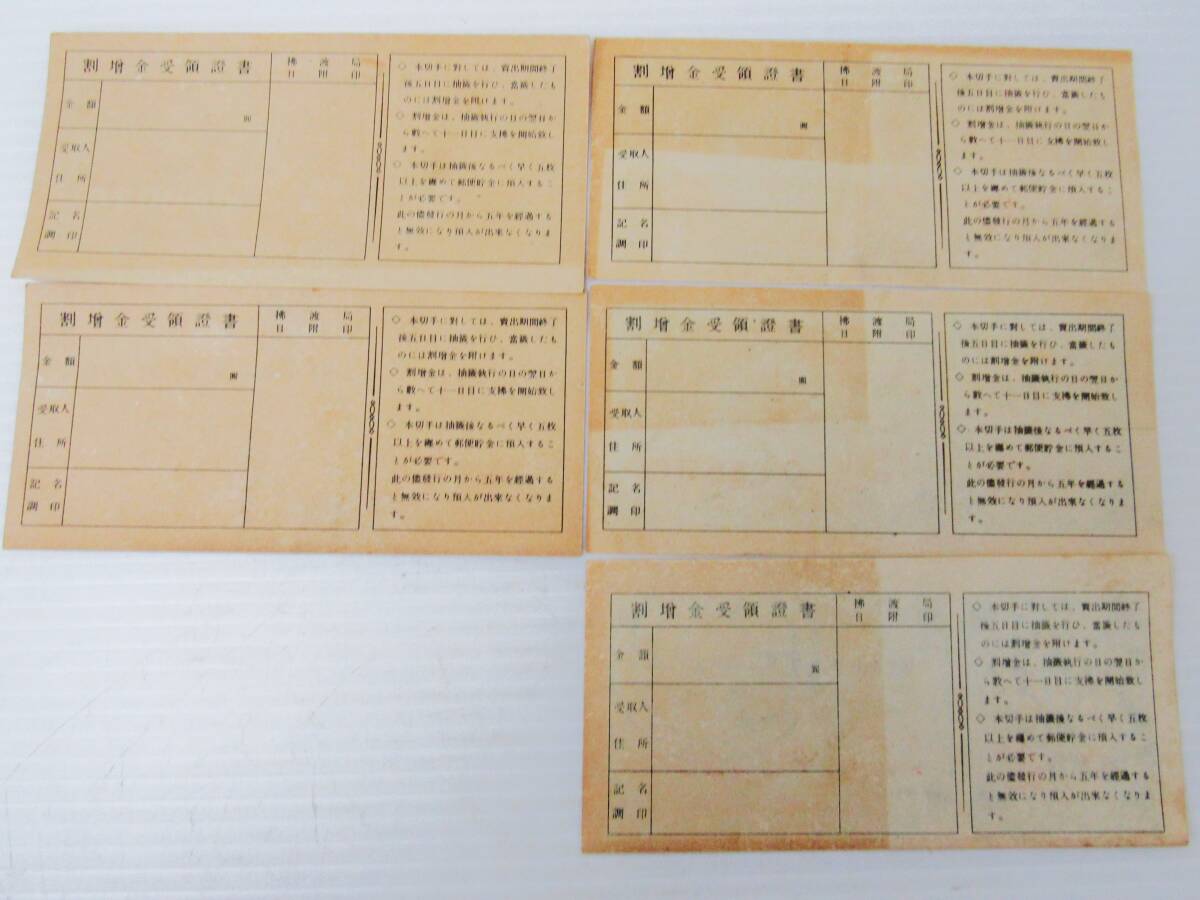 割增金受領證書
拂渡局
日附印
金額
圓
受取人
住所
記名
調印
◇ 本切手に對しては、賣出期間終了
後五日目に抽籤を行ひ、當籤したも
のには割增金を附けます。
◇ 割增金は、抽籤執行の日の翌日か
ら數へて十一日目に支拂を開始致し
ます。
◇ 本切手は抽籤後なるべく早く五枚
以上を纏めて郵便貯金に預入するこ
とが必要です。
此の儘發行の月から五年を經過する
と無效になり預入が出來なくなりま
す。
割增金受領證書
拂渡局
日附印
金額
圓
受取人
住所
記名
調印
◇ 本切手に對しては、賣出期間終了
後五日目に抽籤を行ひ、當籤したも
のには割增金を附けます。
◇ 割增金は、抽籤執行の日の翌日か
ら數へて十一日目に支拂を開始致し
ます。
◇ 本切手は抽籤後なるべく早く五枚
以上を纏めて郵便貯金に預入するこ
とが必要です。
此の儘發行の月から五年を經過する
と無效になり預入が出來なくなりま
す。
割增金受領證書
拂渡局
日附印
金額
圓
受取人
住所
記名
調印
◇ 本切手に對しては、賣出期間終了
後五日目に抽籤を行ひ、當籤したも
のには割增金を附けます。
◇ 割增金は、抽籤執行の日の翌日か
ら數へて十一日目に支拂を開始致し
ます。
◇ 本切手は抽籤後なるべく早く五枚
以上を纏めて郵便貯金に預入するこ
とが必要です。
此の儘發行の月から五年を經過する
と無效になり預入が出來なくなりま
す。
割增金受領證書
拂渡局
日附印
金額
圓
受取人
住所
記名
調印
◇ 本切手に對しては、賣出期間終了
後五日目に抽籤を行ひ、當籤したも
のには割增金を附けます。
◇ 割增金は、抽籤執行の日の翌日か
ら數へて十一日目に支拂を開始致し
ます。
◇ 本切手は抽籤後なるべく早く五枚
以上を纏めて郵便貯金に預入するこ
とが必要です。
此の儘發行の月から五年を經過する
と無效になり預入が出來なくなりま
す。
割增金受領證書
拂渡局
日附印
金額
圓
受取人
住所
記名
調印
◇ 本切手に對しては、賣出期間終了
後五日目に抽籤を行ひ、當籤したも
のには割增金を附けます。
◇ 割增金は、抽籤執行の日の翌日か
ら數へて十一日目に支拂を開始致し
ます。
◇ 本切手は抽籤後なるべく早く五枚
以上を纏めて郵便貯金に預入するこ
とが必要です。
此の儘發行の月から五年を經過する
と無效になり預入が出來なくなりま
す。